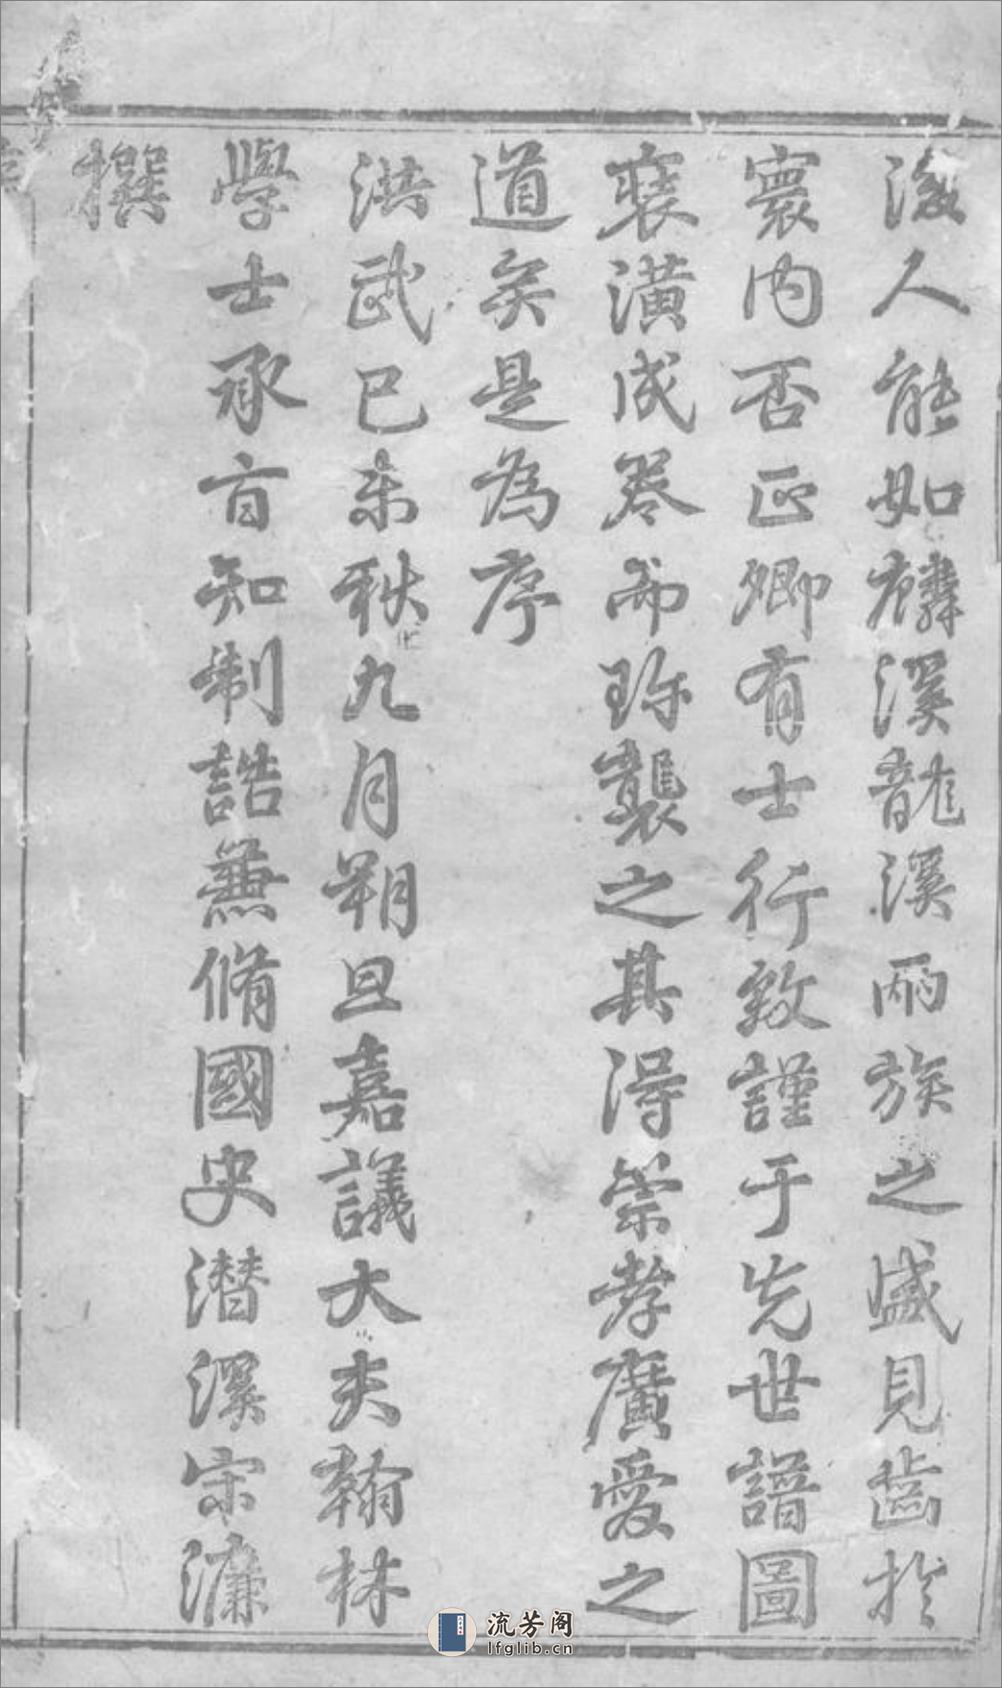 後人能如麟溪龍溪兩族之盛見齒於
寰内否正卿有士行致謹于先世譜圖
裝潢成卷而珎襲之其得崇孝廣愛之
道矣是為序
洪武己未秋九月朔旦嘉議大夫翰林
學士承旨知制誥兼修國史潛溪宋濂
撰
流芳阁
lfglib.cn